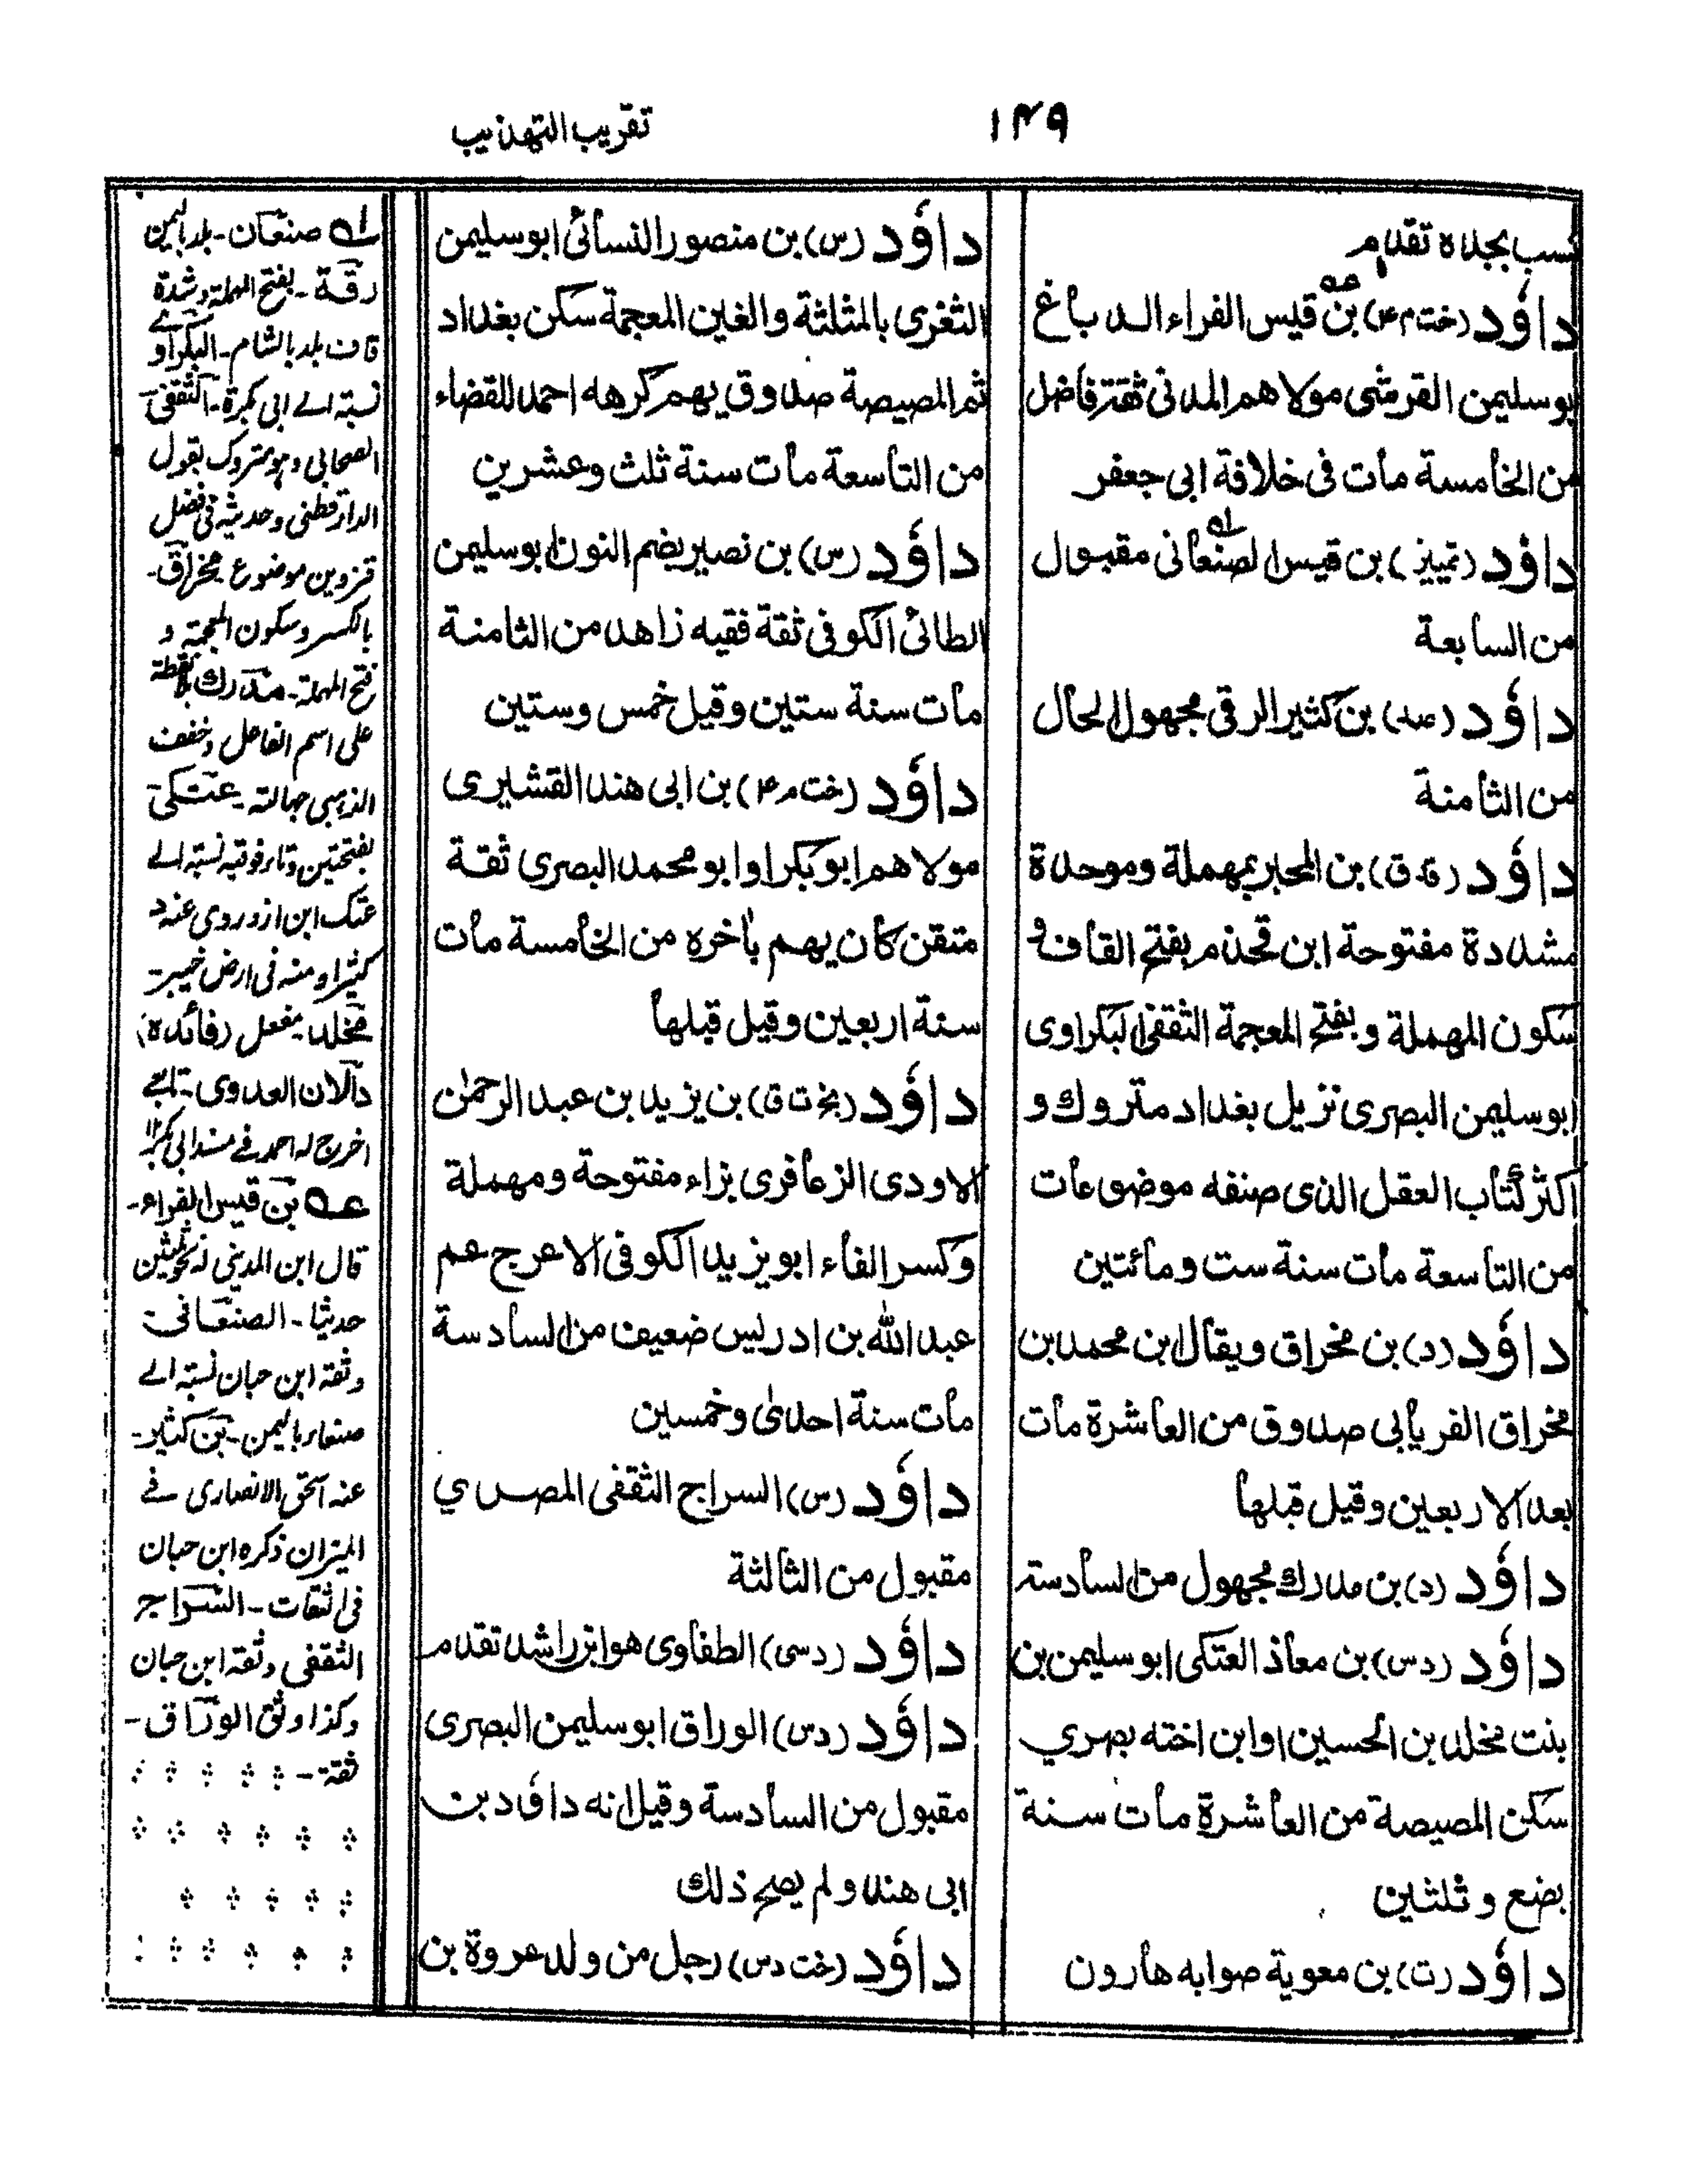 تقريب التهذيب
۱۴۹
نسب بجده تقدم
داؤد (خت م ۴) بن قيس الفراء الدباغ
ابوسليمن القرشي مولاهم المدني ثقة فاضل
من الخامسة مات في خلافة ابي جعفر
داؤد (تمييز) بن قيس الصنعاني مقبول
من السابعة
داؤد (صد) بن كثير الرقي مجهول الحال
من الثامنة
داؤد (ق) بن المحبر بمهملة وموحدة
مشددة مفتوحة ابن قحذم بفتح القاف و
سكون المهملة وبفتح المعجمة الثقفي البكراوي
ابوسليمن البصري نزيل بغداد متروك و
اكثر كتاب العقل الذي صنفه موضوعات
من التاسعة مات سنة ست ومائتين
داؤد (د) بن مخراق ويقال ابن محمد بن
مخراق الفريابي صدوق من العاشرة مات
بعد الاربعين وقيل قبلها
داؤد (د) بن مدرك مجهول من السادسة
داؤد (دس) بن معاذ العتكي ابوسليمن بن
بنت مخلد بن الحسين اوابن اخته بصري
سكن المصيصة من العاشرة مات سنة
بضع وثلثين
داؤد (ت) بن معوية صوابه هارون
داؤد (س) بن منصور النسائي ابوسليمن
الثغري بالمثلثة والغين المعجمة سكن بغداد
ثم المصيصة صدوق يهم كرهه احمد للقضاء
من التاسعة مات سنة ثلث وعشرين
داؤد (س) بن نصير بضم النون ابوسليمن
الطائي الكوفي ثقة فقيه زاهد من الثامنة
مات سنة ستين وقيل خمس وستين
داؤد (خت م ۴) بن ابي هند القشيري
مولاهم ابوبكر اوابو محمد البصري ثقة
متقن كان يهم بأخره من الخامسة مات
سنة اربعين وقيل قبلها
داؤد (بخ ت ق) بن يزيد بن عبد الرحمٰن
الاودي الزعافري بزاء مفتوحة ومهملة
وكسر الفاء ابويزيد الكوفي الاعرج عم
عبد الله بن ادريس ضعيف من السادسة
مات سنة احدى وخمسين
داؤد (س) السراج الثقفي المصري
مقبول من الثالثة
داؤد (دسى) الطفاوي هوابن راشد تقدم
داؤد (دس) الوراق ابوسليمن البصري
مقبول من السادسة وقيل انه داؤد بن
ابي هند ولم يصح ذلك
داؤد (خت دس) رجل من ولد عروة بن
له صنعان - بلد باليمن
رقة - بفتح المهملة وشدة
قاف بلد بالشام - البكراوي
نسبة الے ابي بكرة - الثقفي
الصحابي وهو متروك بقول
الدارقطني وحديثه في فضل
قزوين موضوع مخراق -
بالكسر وسكون المعجمة و
فتح المهملة - مدرك بلا نقطة
على اسم الفاعل وخفف
الذهبي جهالته - عتكي
بفتحتين وتاء فوقية نسبة الے
عتك ابن ازد روى عنه د
كثيرا ومنه في ارض خيبر -
مخلد بمفعل (فائده)
دآلان العدوي - تابعے
اخرج له احمد في مسند ابي بكر
عه بن قيس الفراء -
قال ابن المديني له نحو ثلثين
حديثا - الصنعاني
وثقه ابن حبان نسبة الے
صنعاء باليمن - بن كثير -
عنه اسحق الانصاري في
الميزان ذكره ابن حبان
في الثقات - السراج
الثقفي وثقه ابن حبان
وكذا وثق الوراق -
ثقة -